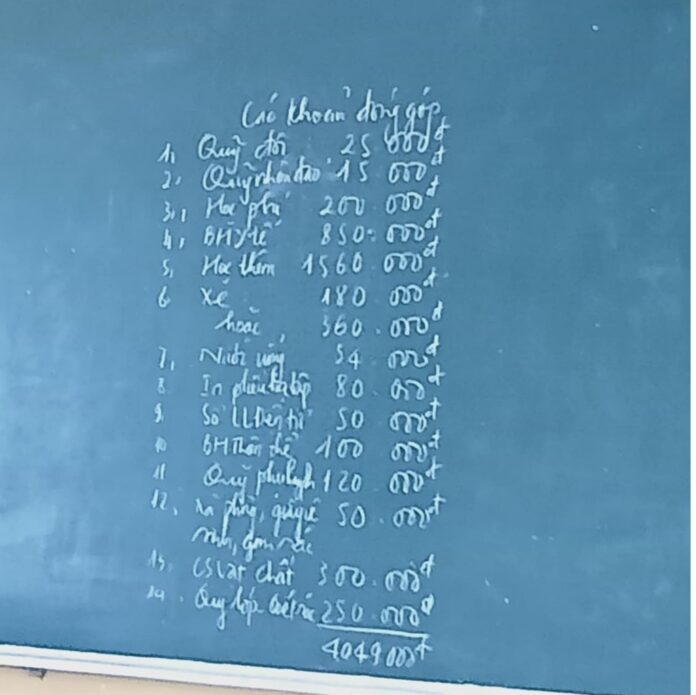 Các khoản đóng góp
1, Quỹ đội 25 000đ
2, Quỹ nhân đạo 15 000đ
3, Học phí 200.000đ
4, BH Y tế 850.000đ
5, Học thêm 1560.000đ
6 Xe 180.000đ
hoặc 360.000đ
7, Nước uống 54 000đ
8 In phiếu 80.000đ
9, Sổ LL Điện tử 50 000đ
10 BH Thân thể 100 000đ
11 Quỹ phụ huynh 120.000đ
12, Xà phòng, giấy vệ 50.000đ
sinh, gom rác
13. CS Vật chất 300.000đ
14. Quỹ lớp 250.000đ
4049 000đ